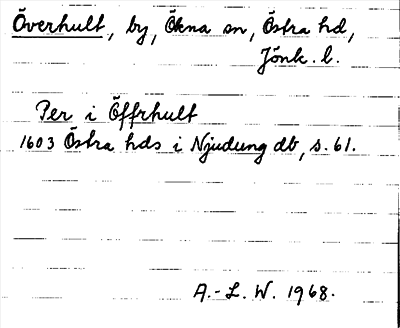 Överhult, by, Ökna sn, Östra hd,
Jönk. l.
Per i Öffrhult
1603 Östra hds i Njudung db, s. 61.
A.-L. W. 1968.